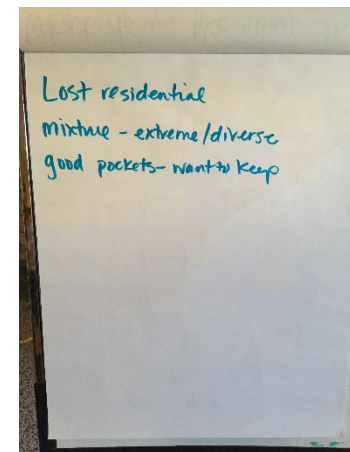 Lost residential
mixture - extreme/diverse
good pockets - want to keep